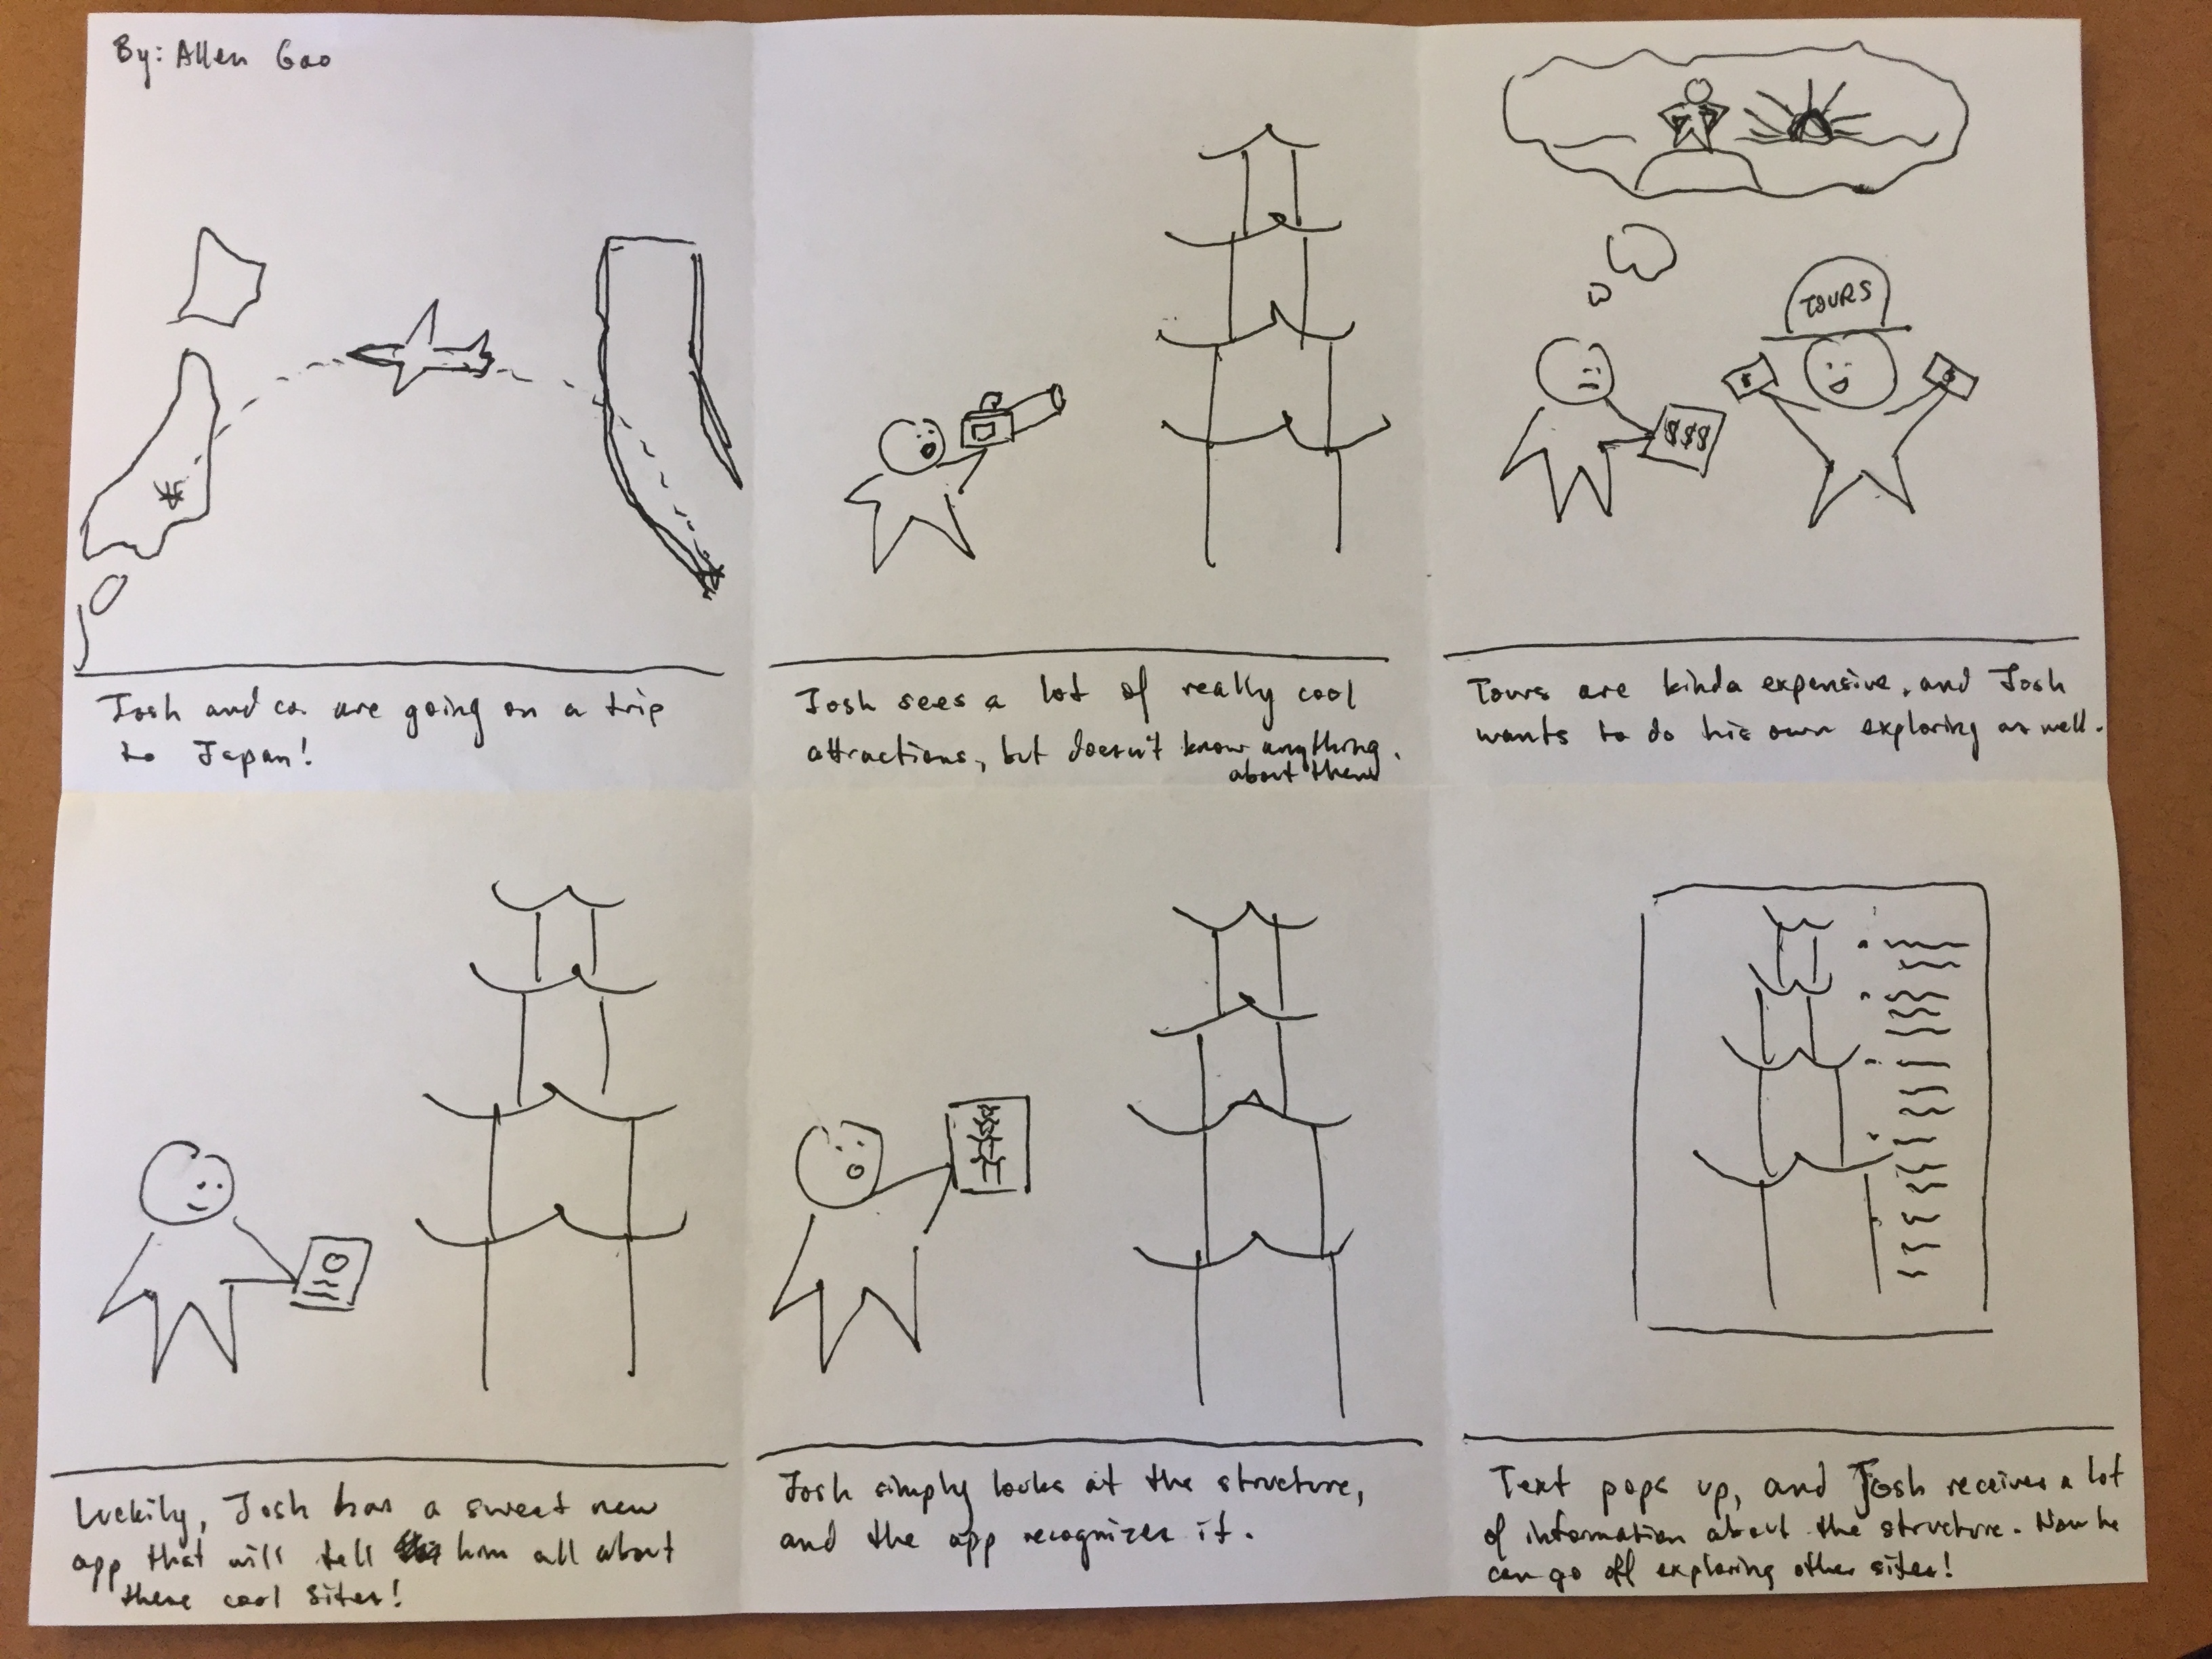 By: Allen Gao
Josh and co. are going on a trip
to Japan!
Josh sees a lot of really cool
attractions, but doesn't know anything.
about them
TOURS
$
$
$$$
Tours are kinda expensive, and Josh
wants to do his own exploring as well.
Luckily, Josh has a sweet new
app that will tell him all about
these cool sites!
Josh simply looks at the structure,
and the app recognizes it.
Text pops up, and Josh receives a lot
of information about the structure. Now he
can go off exploring other sites!